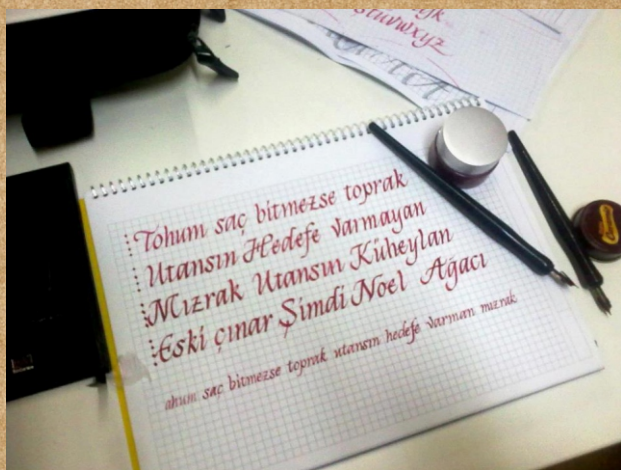 stuvwxyz
Tohum saç bitmezse toprak
Utansın Hedefe Varmayan
Mızrak Utansın Küheylan
Eski çınar Şimdi Noel Ağacı
ahum saç bitmezse toprak utansın hedefe varman mızrak